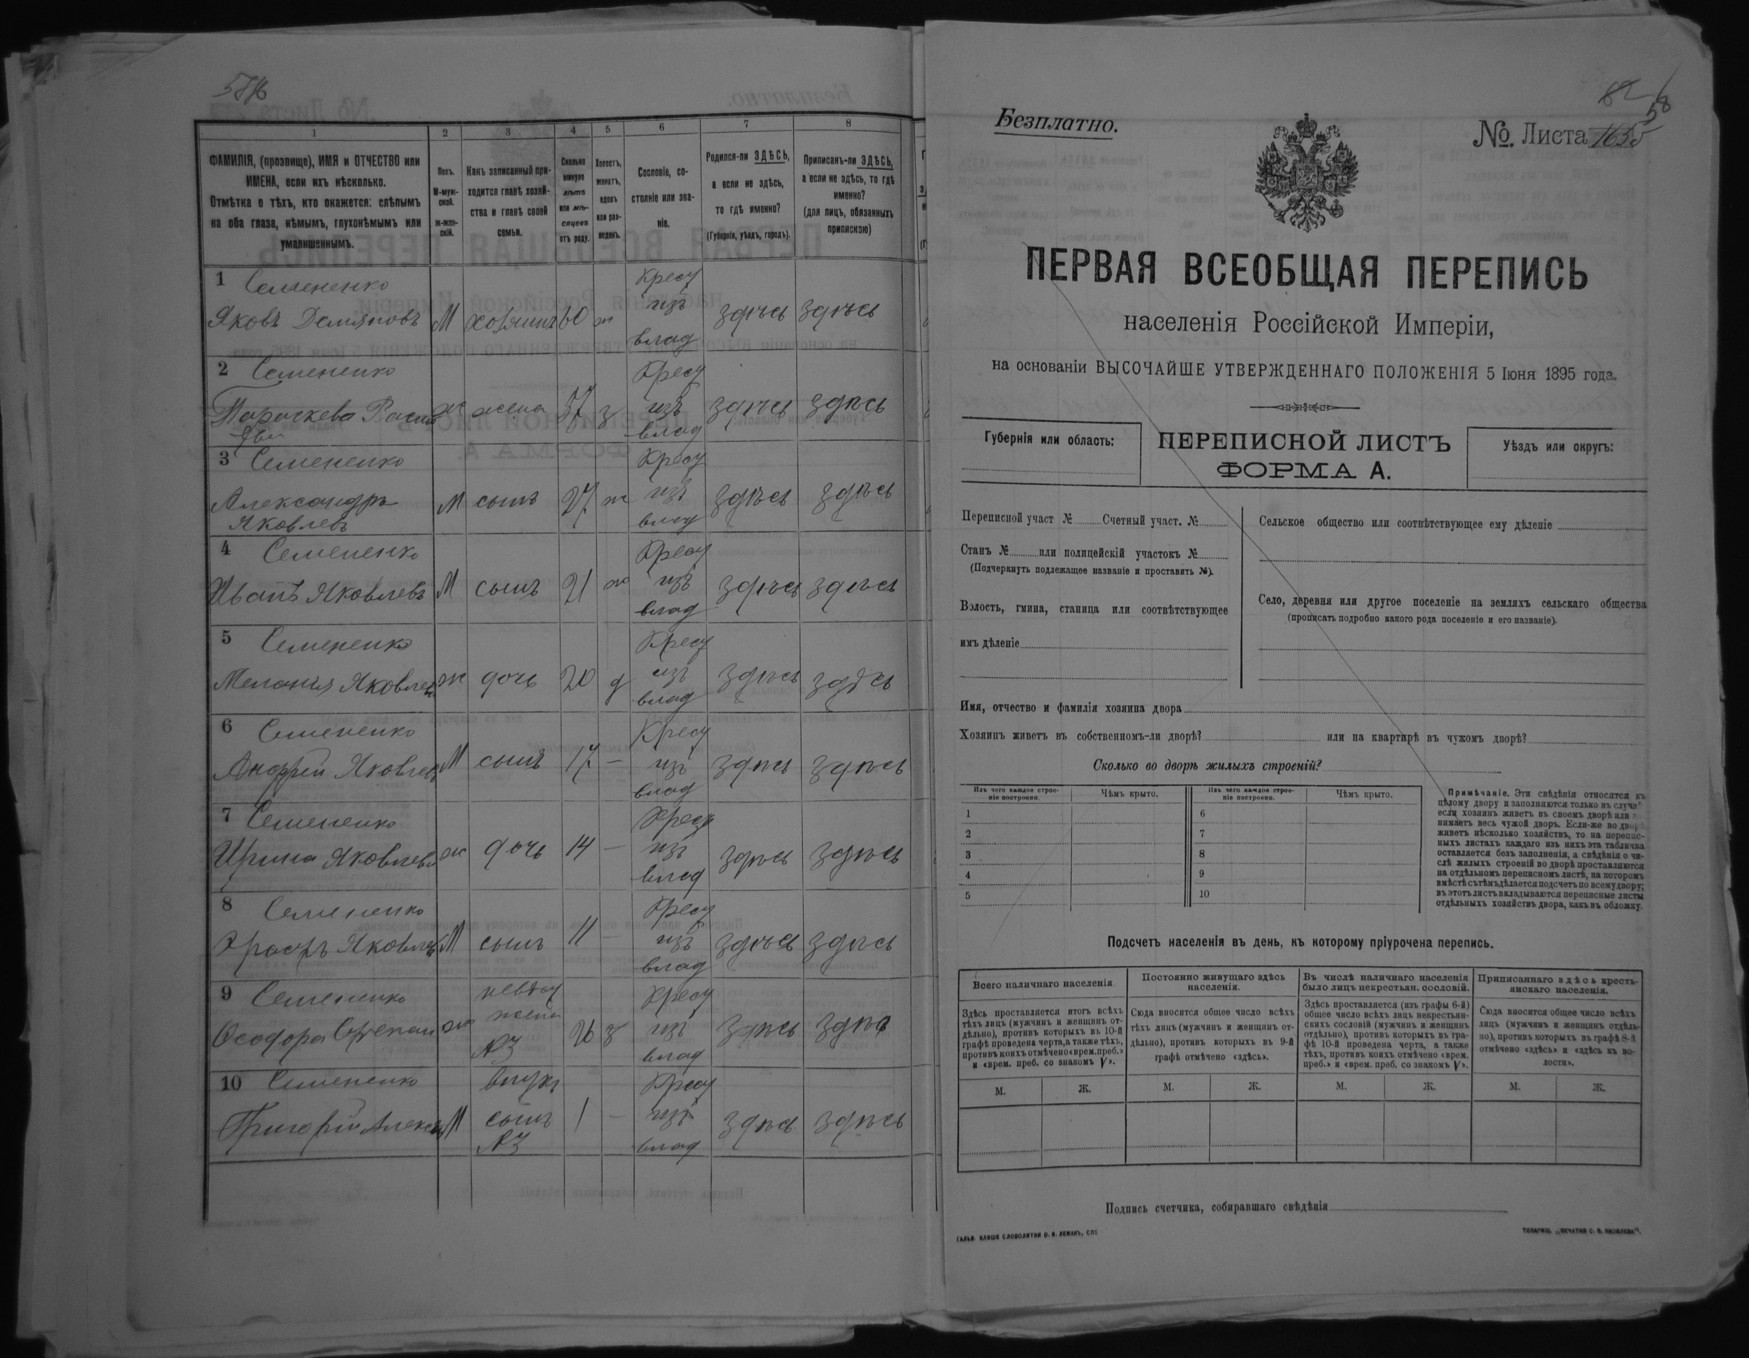 1
2
3
4
5
6
7
8
ФАМИЛІЯ, (прозвище), ИМЯ и ОТЧЕСТВО или
ИМЕНА, если ихъ нѣсколько.
Отмѣтка о тѣхъ, кто окажется: слѣпымъ
на оба глаза, нѣмымъ, глухонѣмымъ или
умалишеннымъ.
Полъ.
М-муж-
ской.
Ж-жен-
скій.
Какъ записанный при-
ходится главѣ хозяй-
ства и главѣ своей
семьи.
Сколько
минуло
лѣтъ
или мѣ-
сяцевъ
отъ роду.
Холостъ,
женатъ,
вдовъ
или раз-
веденъ.
Сословіе, со-
стояніе или зва-
ніе.
Родился-ли ЗДѢСЬ,
а если не здѣсь,
то гдѣ именно?
(Губернія, уѣздъ, городъ).
Приписанъ-ли ЗДѢСЬ,
а если не здѣсь, то гдѣ
именно?
(для лицъ, обязанныхъ
припискою)
1 Семененко
Яковъ Демяновъ М хозяинъ 60 ж Крест изъ влад здѣсь здѣсь
2 Семененко
ж жена 57 з Крест изъ влад здѣсь здѣсь
3 Семененко
Александръ
Яковлевъ М сынъ 27 ж Крест изъ влад здѣсь здѣсь
4 Семененко
Иванъ Яковлевъ М сынъ 21 ж Крест изъ влад здѣсь здѣсь
5 Семененко
Мелания Яковлев ж дочь 20 д Крест изъ влад здѣсь здѣсь
6 Семененко
Андрей Яковлев М сынъ 17 – Крест изъ влад здѣсь здѣсь
7 Семененко
Ирина Яковлева ж дочь 14 – Крест изъ влад здѣсь здѣсь
8 Семененко
Яковлев М сынъ 11 – Крест изъ влад здѣсь здѣсь
9 Семененко
Ѳеодора Степан ж невѣст жена №3 26 з Крест изъ влад здѣсь здѣсь
10 Семененко
Григорій Алекса М внукъ сынъ №3 1 – Крест изъ влад здѣсь здѣсь
58
Безплатно.
№ Листа
ПЕРВАЯ ВСЕОБЩАЯ ПЕРЕПИСЬ
населенія Россійской Имперіи,
на основаніи ВЫСОЧАЙШЕ УТВЕРЖДЕННАГО ПОЛОЖЕНІЯ 5 Іюня 1895 года.
Губернія или область:
ПЕРЕПИСНОЙ ЛИСТЪ
ФОРМА А.
Уѣздъ или округъ:
Переписной участ №   Счетный участ. №
Станъ №   или полицейскій участокъ №
(Подчеркнуть подлежащее названіе и проставить №).
Волость, гмина, станица или соотвѣтствующее
имъ дѣленіе
Сельское общество или соотвѣтствующее ему дѣленіе
Село, деревня или другое поселеніе на земляхъ сельскаго общества
(прописать подробно какого рода поселеніе и его названіе).
Имя, отчество и фамилія хозяина двора
Хозяинъ живетъ въ собственномъ-ли дворѣ?   или на квартирѣ въ чужомъ дворѣ?
Сколько во дворѣ жилыхъ строеній?
Изъ чего каждое строе-
ніе построено.
Чѣмъ крыто.
Изъ чего каждое строе-
ніе построено.
Чѣмъ крыто.
1 6
2 7
3 8
4 9
5 10
Примѣчаніе. Эти свѣдѣнія относятся къ
цѣлому двору и заполняются только въ случаѣ
если хозяинъ живетъ въ своемъ дворѣ или
нимаетъ весь чужой дворъ. Если-же во дворѣ
живетъ нѣсколько хозяйствъ, то на перепис-
ныхъ листахъ каждаго изъ нихъ эта табличка
оставляется безъ заполненія, а свѣдѣнія о чи-
слѣ жилыхъ строеній во дворѣ проставляются
на отдѣльномъ переписномъ листѣ, на которомъ
вмѣстѣ съ тѣмъ дѣлается подсчетъ по всему двору;
въ этотъ листъ вкладываются переписные листы
отдѣльныхъ хозяйствъ двора, какъ въ обложку.
Подсчетъ населенія въ день, къ которому пріурочена перепись.
Всего наличнаго населенія.
Здѣсь проставляется итогъ всѣхъ
тѣхъ лицъ (мужчинъ и женщинъ от-
дѣльно), противъ которыхъ въ 10-й
графѣ проведена черта, а также тѣхъ,
противъ коихъ отмѣчено «врем. преб.»
и «врем. преб. со знакомъ V».
Постоянно живущаго здѣсь
населенія.
Сюда вносится общее число всѣхъ
тѣхъ лицъ (мужчинъ и женщинъ от-
дѣльно), противъ которыхъ въ 9-й
графѣ отмѣчено «здѣсь».
Въ числѣ наличнаго населенія
было лицъ некрестьян. сословій.
Здѣсь проставляется (изъ графы 6-й)
общее число всѣхъ лицъ некрестьян-
скихъ сословій (мужчинъ и женщинъ
отдѣльно), противъ которыхъ въ гра-
фѣ 10-й проведена черта, а также
тѣхъ, противъ коихъ отмѣчено «врем.
преб.» и «врем. преб. со знакомъ V».
Приписаннаго здѣсь кресть-
янскаго населенія.
Сюда вносится общее число всѣхъ
лицъ (мужчинъ и женщинъ отдѣль-
но), противъ которыхъ въ графѣ 8-й
отмѣчено «здѣсь» и «здѣсь въ во-
лости».
М. Ж. М. Ж. М. Ж. М. Ж.
Подпись счетчика, собиравшаго свѣдѣнія
ГАЛЬВ. КЛИШЕ СЛОВОЛИТНИ О. И. ЛЕМАНЪ, СПБ
ТОВАРИЩ. „ПЕЧАТНЯ С. П. ЯКОВЛЕВА".